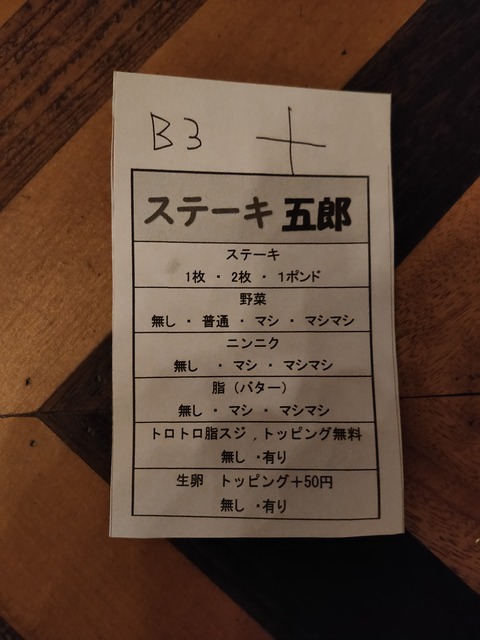 B3 十
ステーキ 五郎
ステーキ
1枚 ・ 2枚 ・ 1ポンド
野菜
無し ・ 普通 ・ マシ ・ マシマシ
ニンニク
無し ・ マシ ・ マシマシ
脂（バター）
無し ・ マシ ・ マシマシ
トロトロ脂スジ , トッピング無料
無し ・有り
生卵 トッピング＋50円
無し ・有り